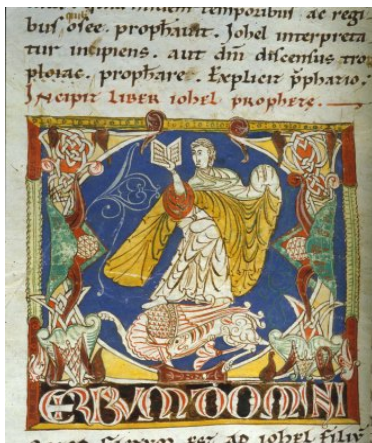 temporibus ac regi
bus osee prophauit. Johel interpreta
tur incipiens. aut dm discensus tro
ploiac. prophare. Explicit pphatio.
INCIPIT LIBER iohel prophete.
ERBUM DOMINI
est ad iohel filiu